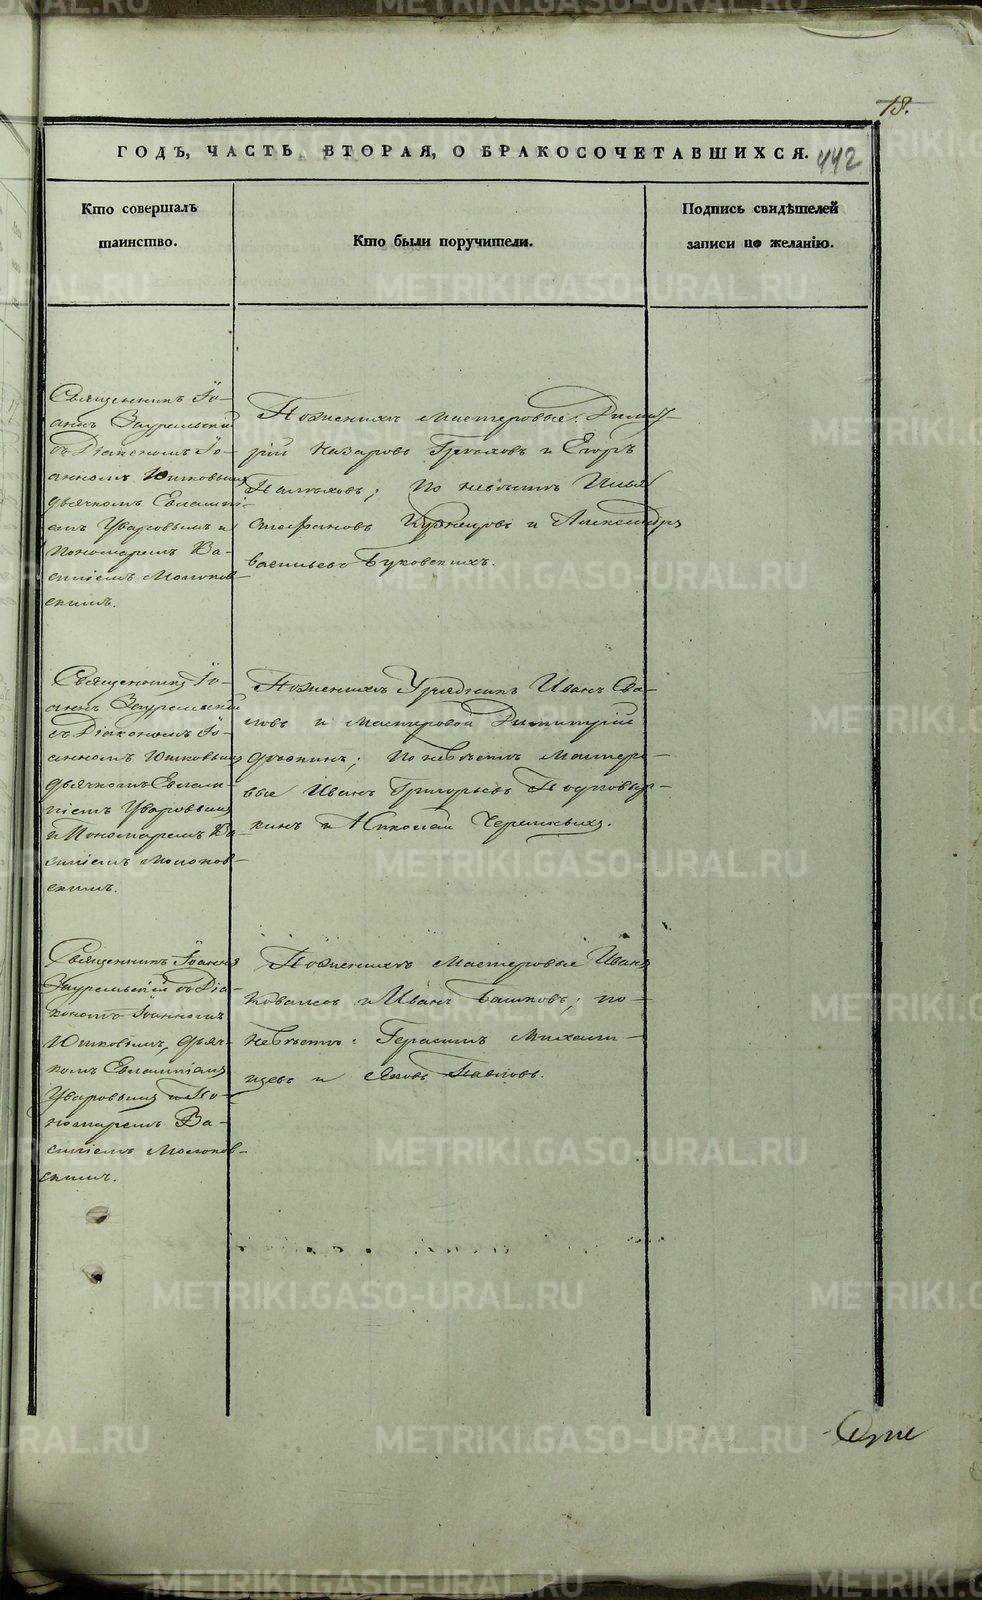 18.
ГОДЪ, ЧАСТЬ ВТОРАЯ, О БРАКОСОЧЕТАВШИХСЯ.
442
Кто совершалъ
таинство.
Кто были поручители.
Подпись свидѣтелей
записи по желанію.
Священникъ Іо-
аннъ Зауральскій
съ Діакономъ Іо-
анномъ Ютковымъ
дьячкомъ Евлампі-
емъ Уваровымъ и
Пономаремъ Ва-
силіемъ Молоков-
скимъ.
По женихѣ Мастеровые: Димит-
рій Назаровъ Грѣховъ и Егоръ
Палтѣховъ; По невѣстѣ Илья
Стефановъ Кузнецовъ и Александръ
Васильевъ Буковскихъ.
Священникъ Іо-
аннъ Зауральскій
съ Діакономъ Іо-
анномъ Ютковымъ
дьячкомъ Евлам-
піемъ Уваровымъ
и Пономаремъ Ва-
силіемъ Молоков-
скимъ.
По женихѣ Урядникъ Иванъ
и Мастеровой Димитрій
По невѣстѣ Мастеро-
вые Иванъ Григорьевъ
и Николай
Священникъ Іоаннъ
Зауральскій съ Діа-
кономъ Іоанномъ
Ютковымъ, дьяч-
комъ Евлампіемъ
Уваровымъ и По-
номаремъ Ва-
силіемъ Молоков-
скимъ.
По женихѣ Мастеровые Иванъ
и Иванъ Башковъ; по
невѣстѣ: Герасимъ Михали-
цевъ и Яковъ Павловъ.
METRIKI.GASO-URAL.RU